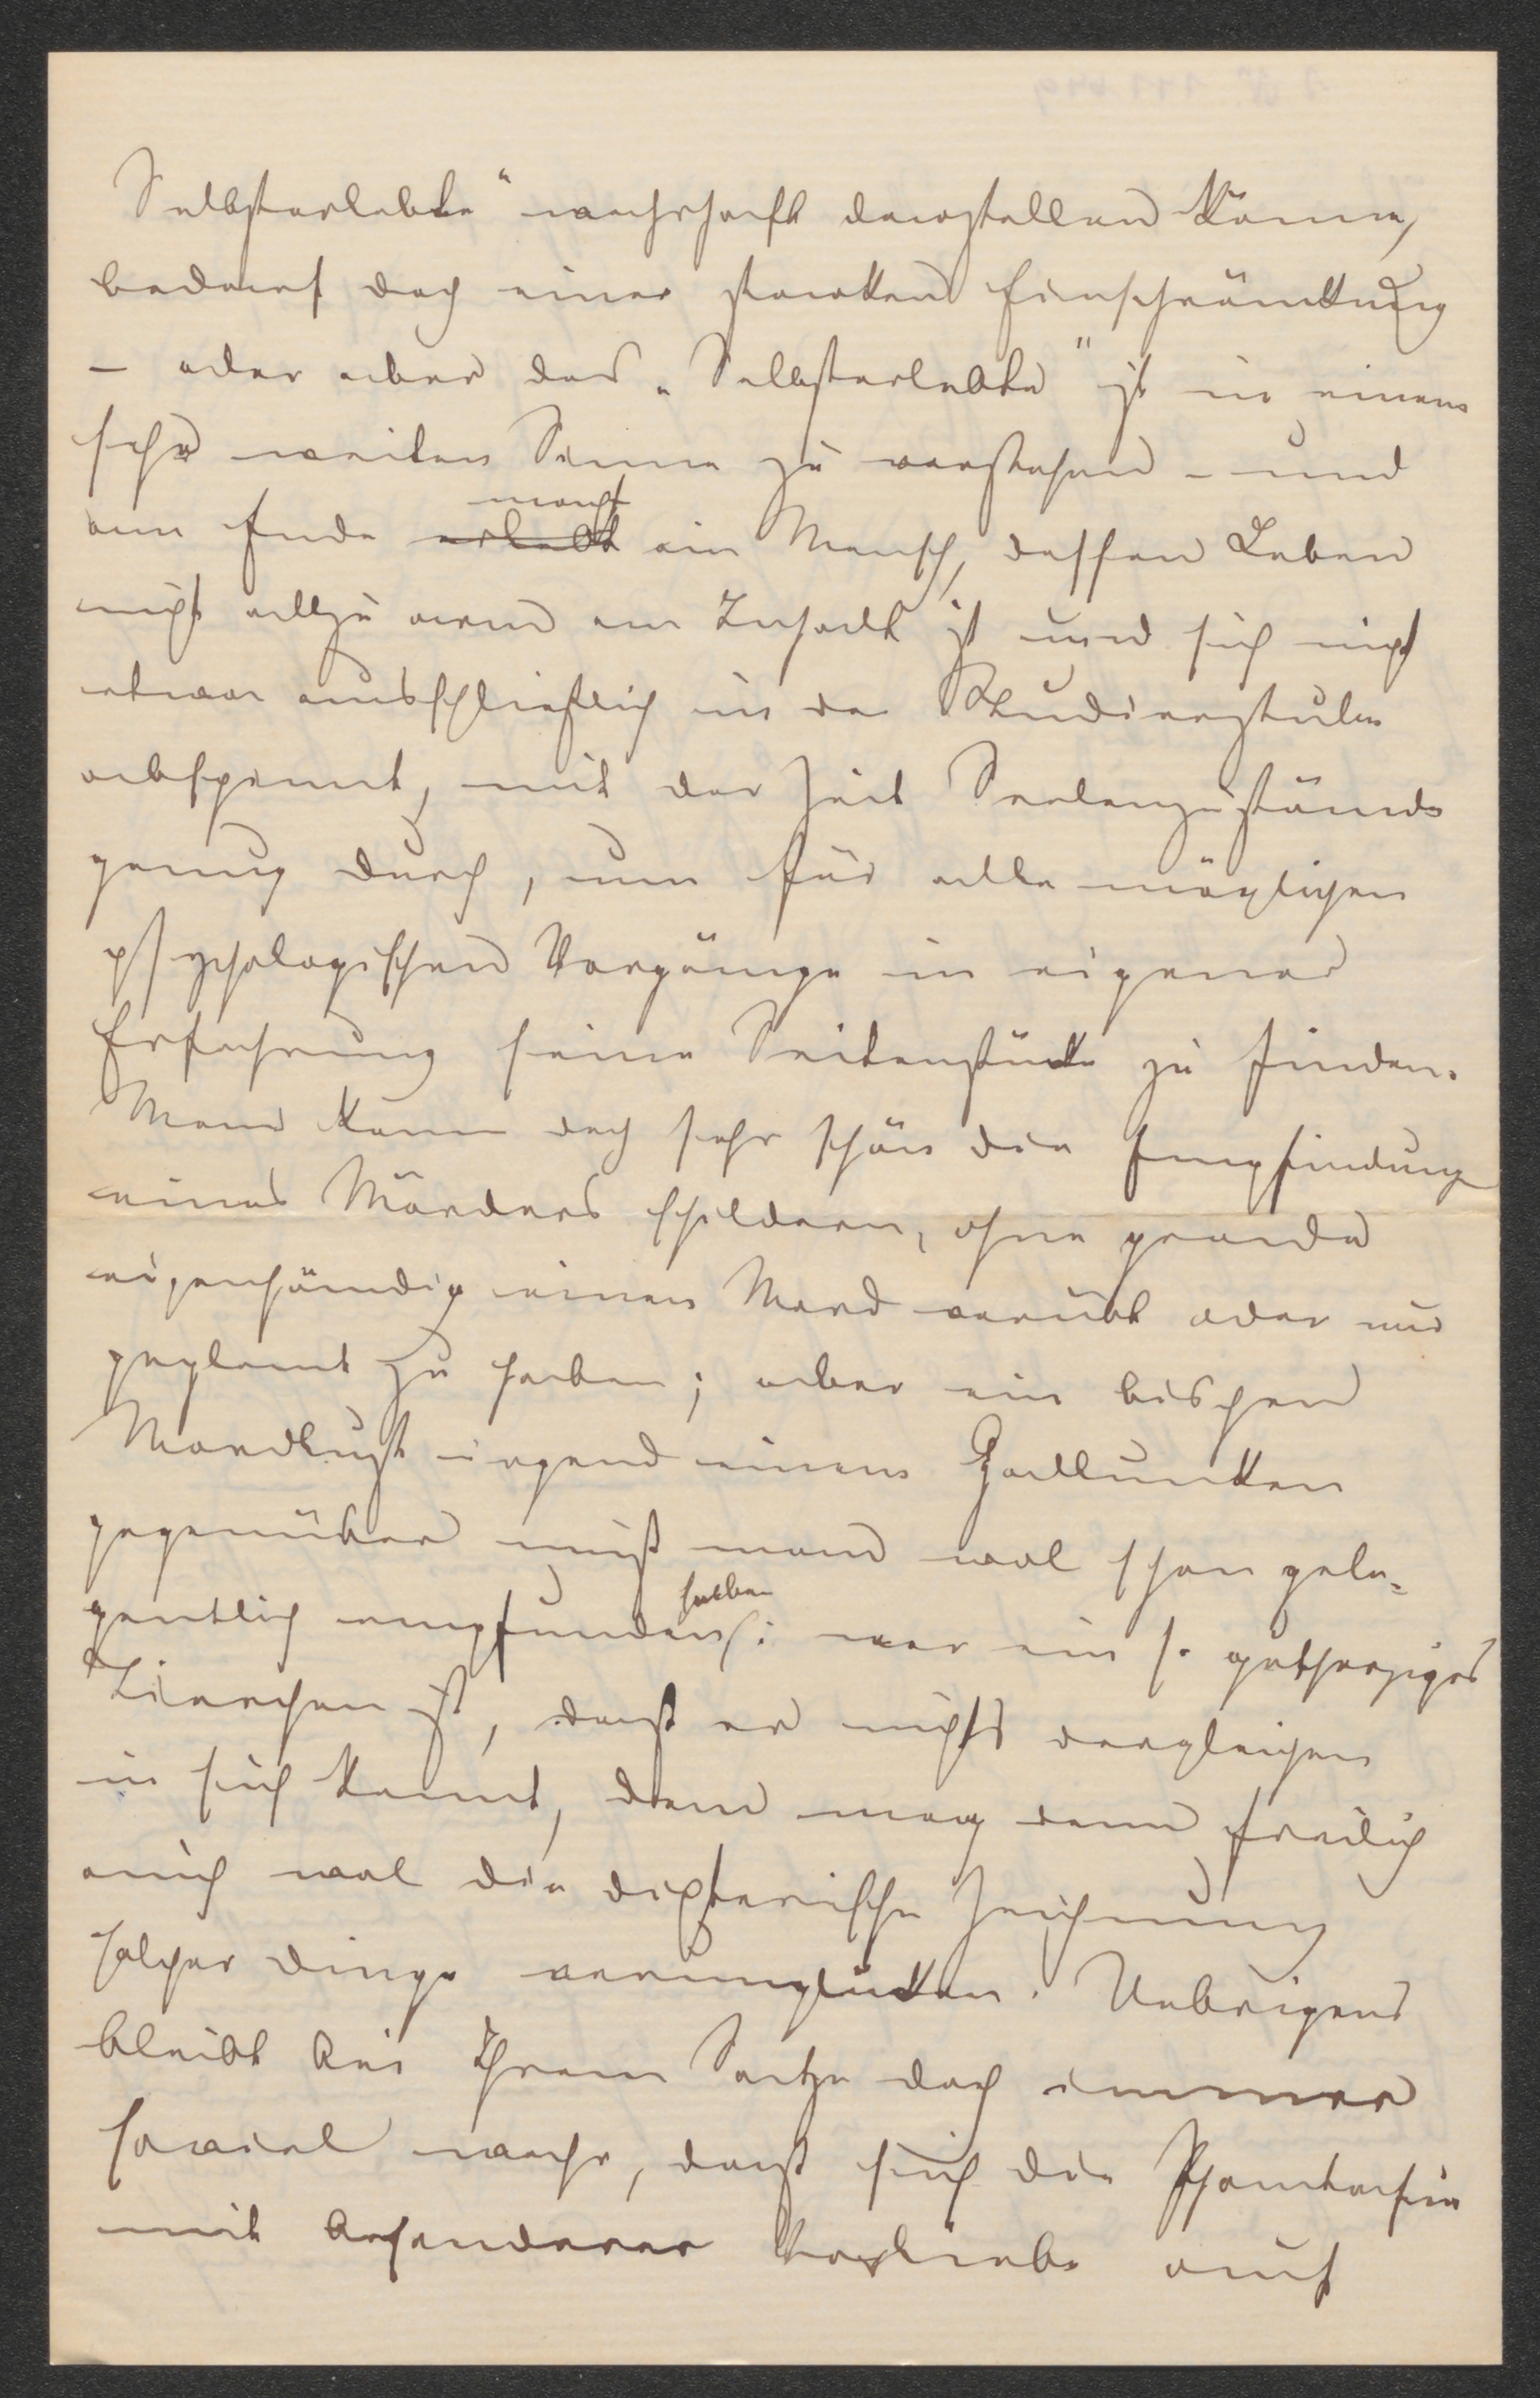 Selbsterlebte" wahrhaft darstellen könne,
bedarf doch einer starken Einschränkung
– oder aber das „Selbsterlebte" ist in einem
sehr weiten Sinne zu verstehen – und
am Ende erlebt macht ein Mensch, dessen Leben
nicht allzu arm an Inhalt ist und sich nicht
etwa ausschließlich in der Studierstube
abspinnt, mit der Zeit Seelenzustände
genug durch, um für alle möglichen
psychologischen Vorgänge in eigener
Erfahrung seine Seitenstücke zu finden.
Man kann doch sehr schön die Empfindung
eines Mörders schildern, ohne gerade
eigenhändig einen Mord verübt oder nur
geplant zu haben; aber ein bischen
Mordlust irgend einem Hallunken
gegenüber muß man wol schon gele-
gentlich empfunden haben: wer ein so gutherziges
Tierchen ist, daß er nichts dergleichen
in sich kennt, dem mag denn freilich
auch wol die dichterische Zeichnung
solcher Dinge verunglücken. Uebrigens
bleibt bei Ihrem Satze doch immer
soviel wahr, daß sich die Phantasie
mit besonderer Vorliebe auf